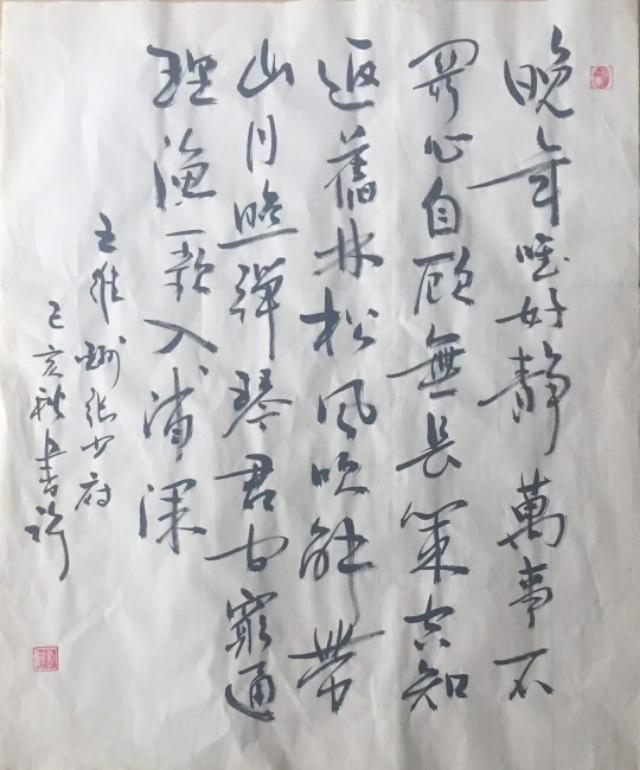 晚年唯好靜萬事不
關心自顧無長策空知
返舊林松風吹解帶
山月照彈琴君問窮通
理漁歌入浦深
王維酬張少府
己亥秋書